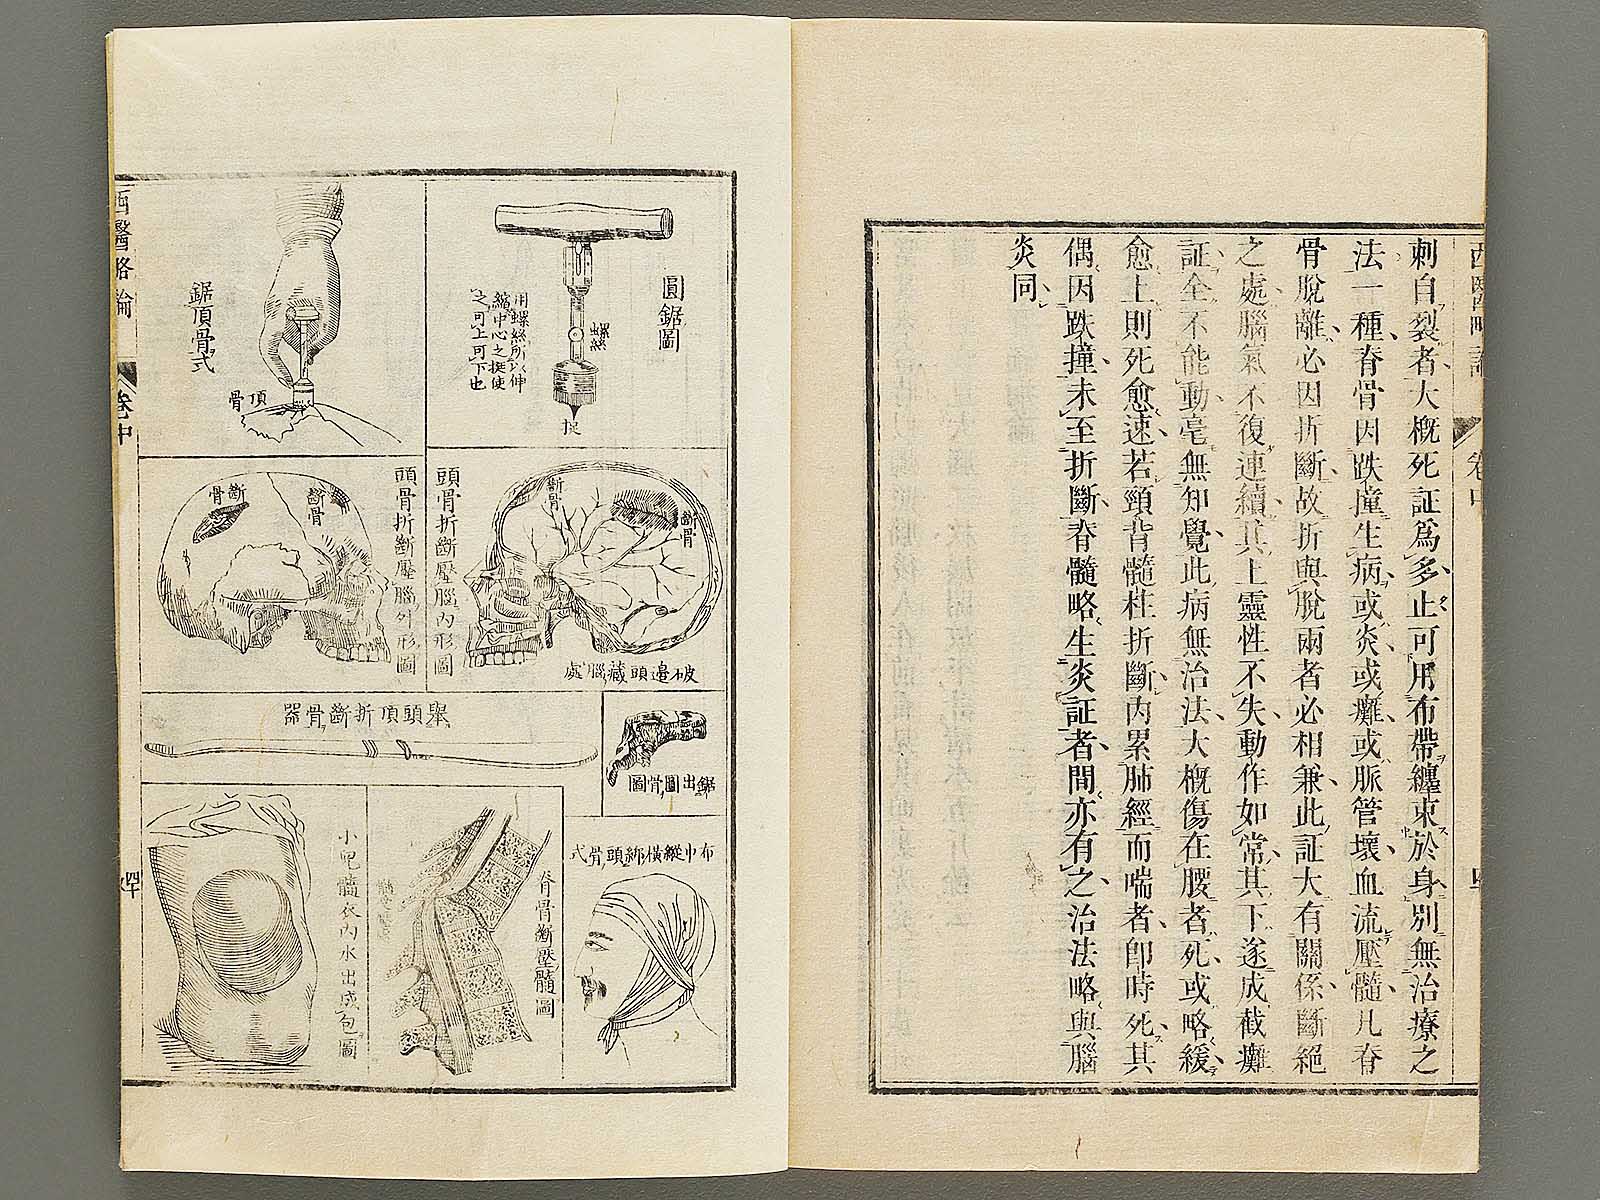 刺自裂者大概死証爲多止可用布帶纏束於身別無治療之
法一種脊骨因跌撞生病或炎或癱或脈管壞血流壓髓凡脊
骨脫離必因折斷故折與脫兩者必相兼此証大有關係斷絕
之處腦氣不復連續其上靈性不失動作如常其下遂成截癱
証全不能動毫無知覺此病無治法大概傷在腰者死或略緩
愈上則死愈速若頸背髓柱折斷內累肺經而喘者卽時死其
偶因跌撞未至折斷脊髓略生炎証者間亦有之治法略與腦
炎同
西醫略論
卷中
圓鋸圖
螺絲
用螺絲所以伸
縮中心之挺使
之可上可下也
挺
鋸頂骨式
頂骨
頭骨折斷壓腦內形圖
斷骨
斷骨
破邊頭藏腦處
頭骨折斷壓腦外形圖
斷骨
斷骨
舉頭頂折斷骨器
鋸出圖骨圖
布巾縱橫綁頭骨式
脊骨斷壓髓圖
小兒髓衣內水出成包圖
西醫略論
卷中
四十